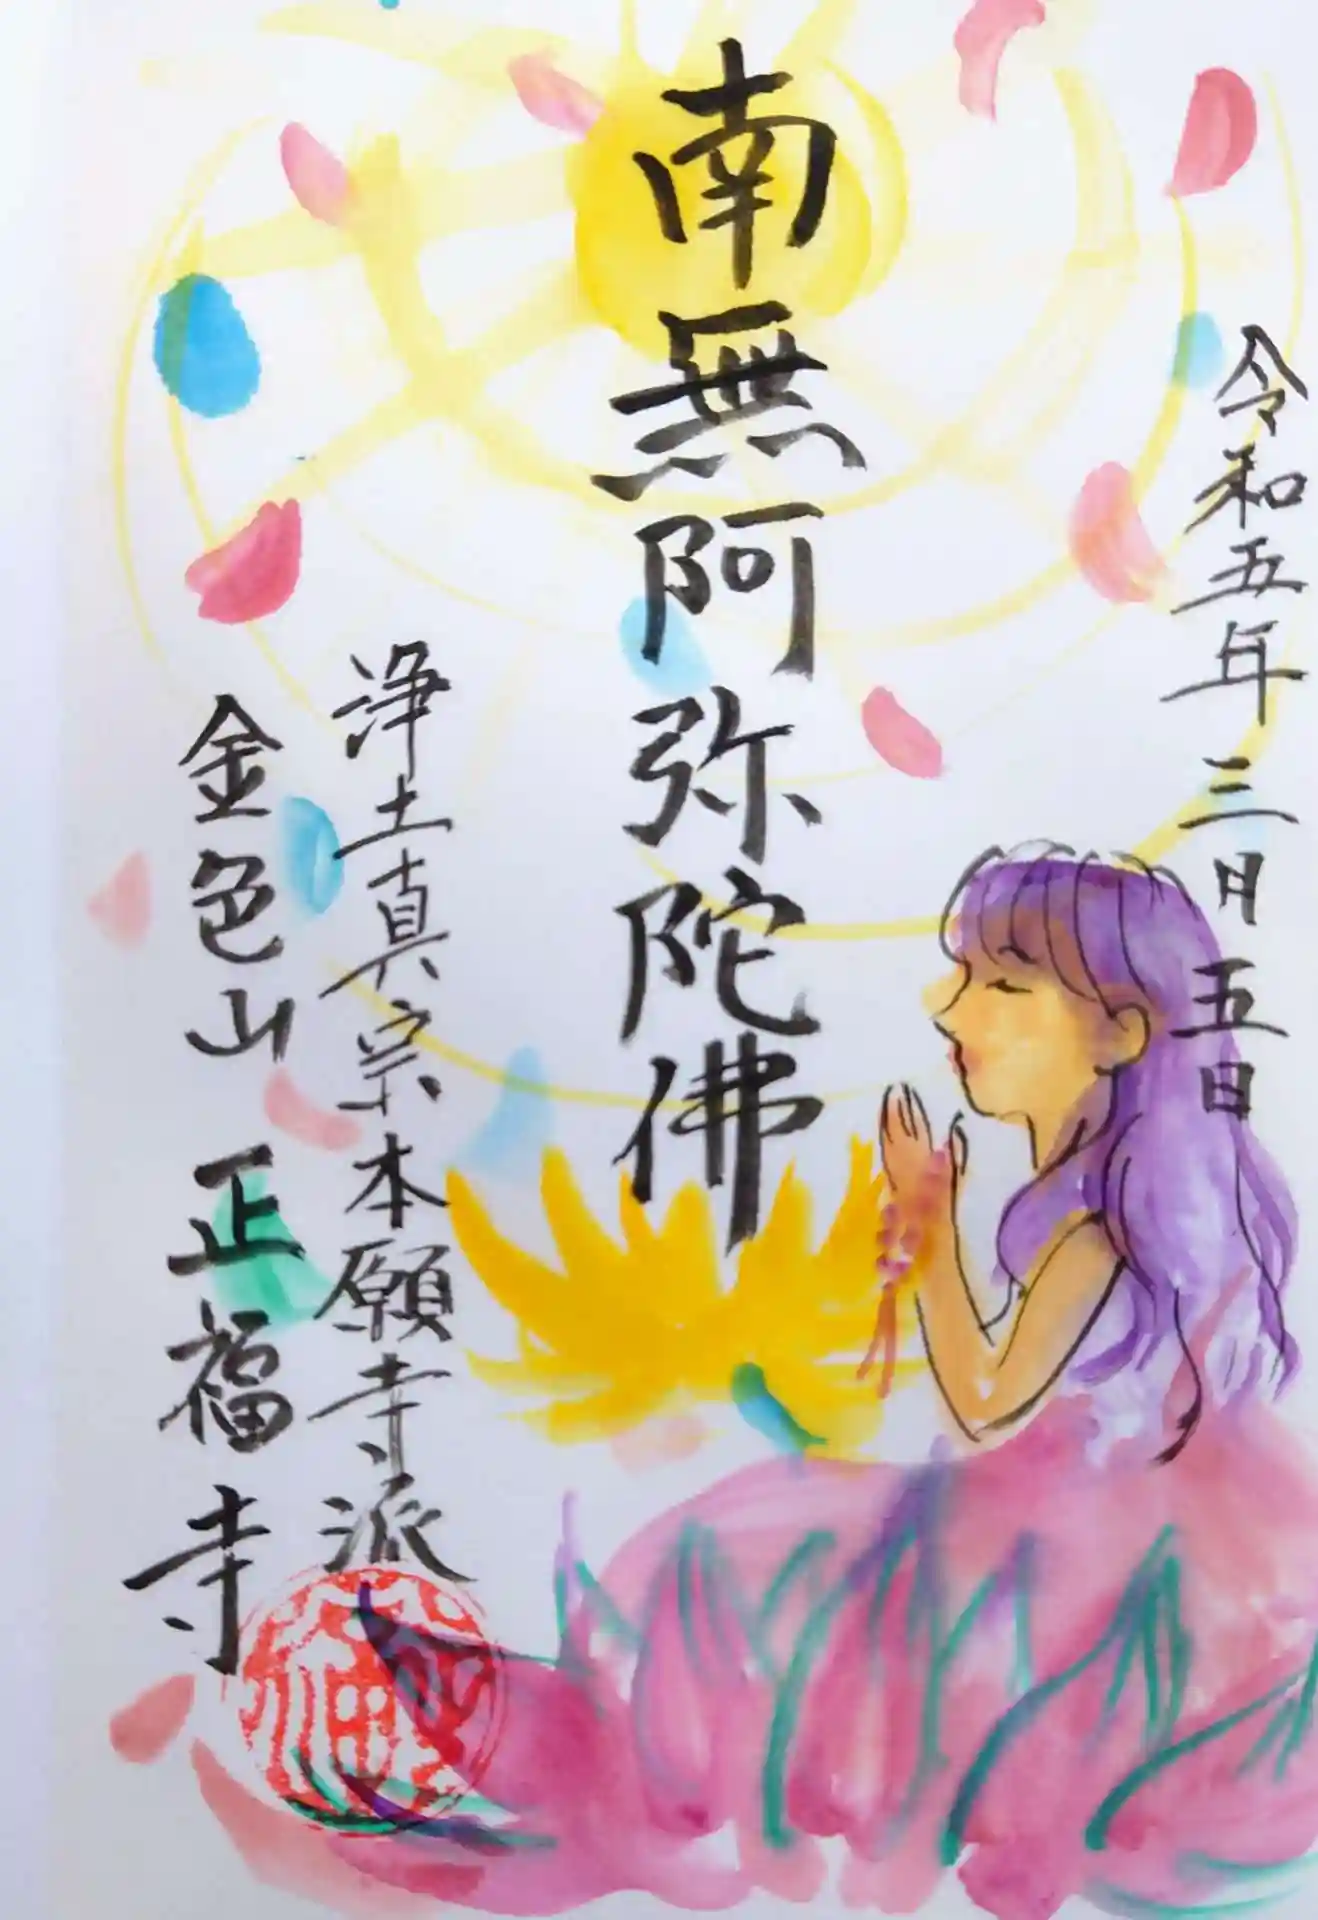 令和五年三月五日
南無阿弥陀佛
浄土真宗本願寺派
金色山 正福寺